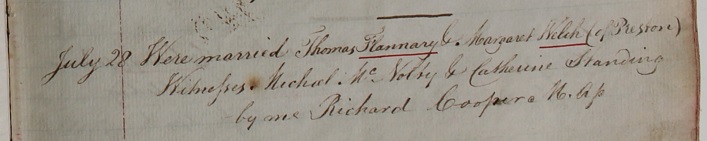 July 28 Were married Thomas Flannary & Margaret Welch (of Preston)
Witnesses. Michael Mc Nolty & Catherine Standing
by me Richard Cooper